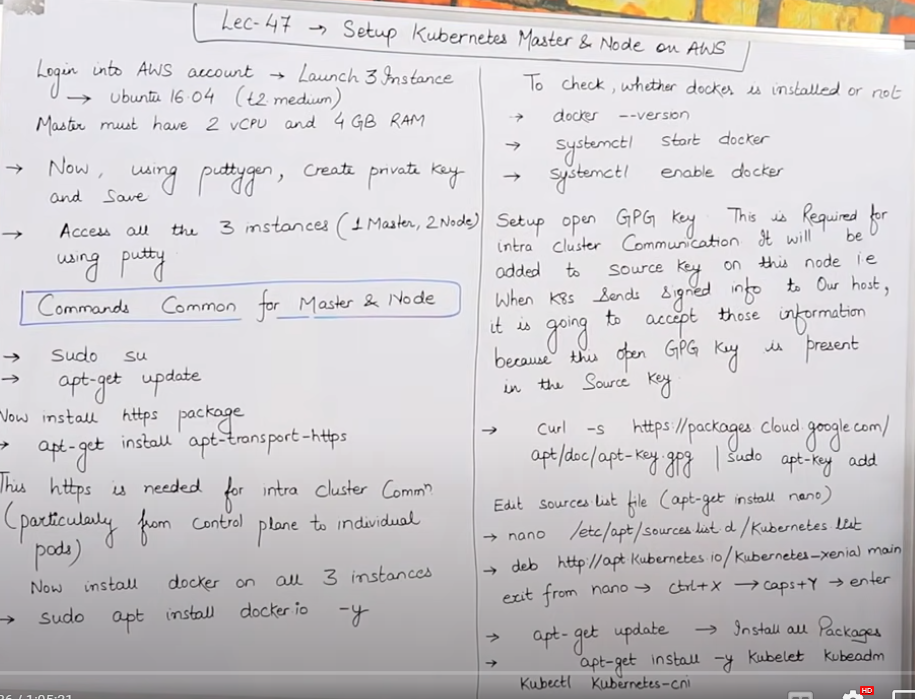 Lec-47 → Setup Kubernetes Master & Node on AWS
Login into AWS account → Launch 3 Instance
→ Ubuntu 16.04 (t2.medium)
Master must have 2 vCPU and 4 GB RAM
→ Now, using puttygen, Create private Key
and Save
→ Access all the 3 instances (1 Master, 2 Node)
using putty
Commands Common for Master & Node
→ Sudo su
→ apt-get update
Now install https package
→ apt-get install apt-transport-https
This https is needed for intra cluster Commⁿ
(particularly from Control plane to individual
pods)
Now install docker on all 3 instances
→ sudo apt install docker.io -y
To check, whether docker is installed or not
→ docker --version
→ systemctl start docker
→ systemctl enable docker
Setup open GPG Key. This is Required for
intra cluster Communication. It will be
added to source Key on this node i.e
When K8s Sends Signed info to Our host,
it is going to accept those information
because this open GPG Key is present
in the Source Key
→ Curl -s https://packages.cloud.google.com/
apt/doc/apt-key.gpg | sudo apt-key add
Edit sources list file (apt-get install nano)
→ nano /etc/apt/sources.list.d/Kubernetes.list
→ deb http://apt.Kubernetes.io/Kubernetes-xenial main
exit from nano → Ctrl+X → Caps+Y → enter
→ apt-get update → Install all Packages
→ apt-get install -y Kubelet Kubeadm
Kubectl Kubernetes-cni
/ 1:05:21
HD